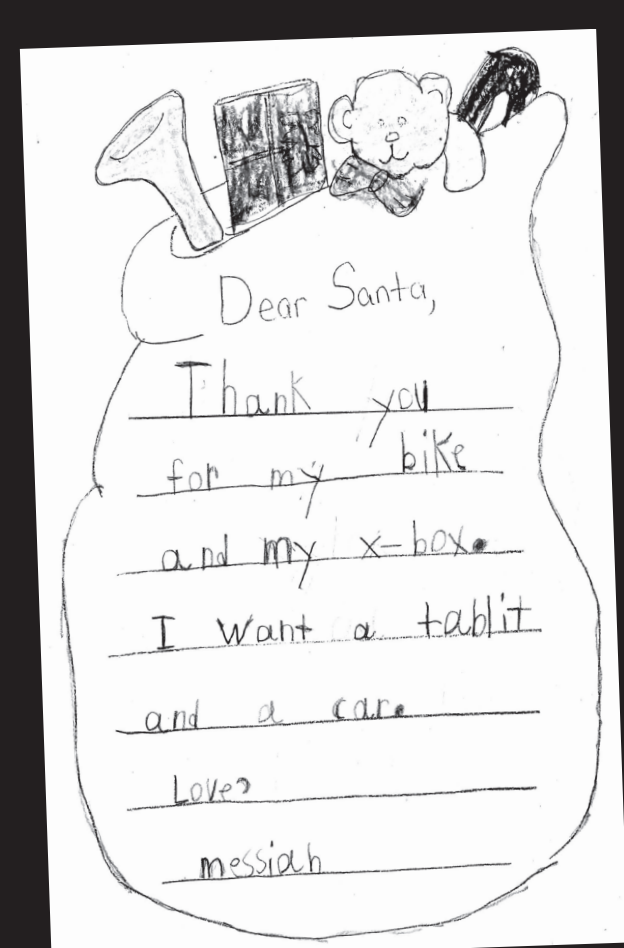 Dear Santa,
Thank you
for my bike
and my x-box.
I want a tablit
and a car.
Love,
messiah